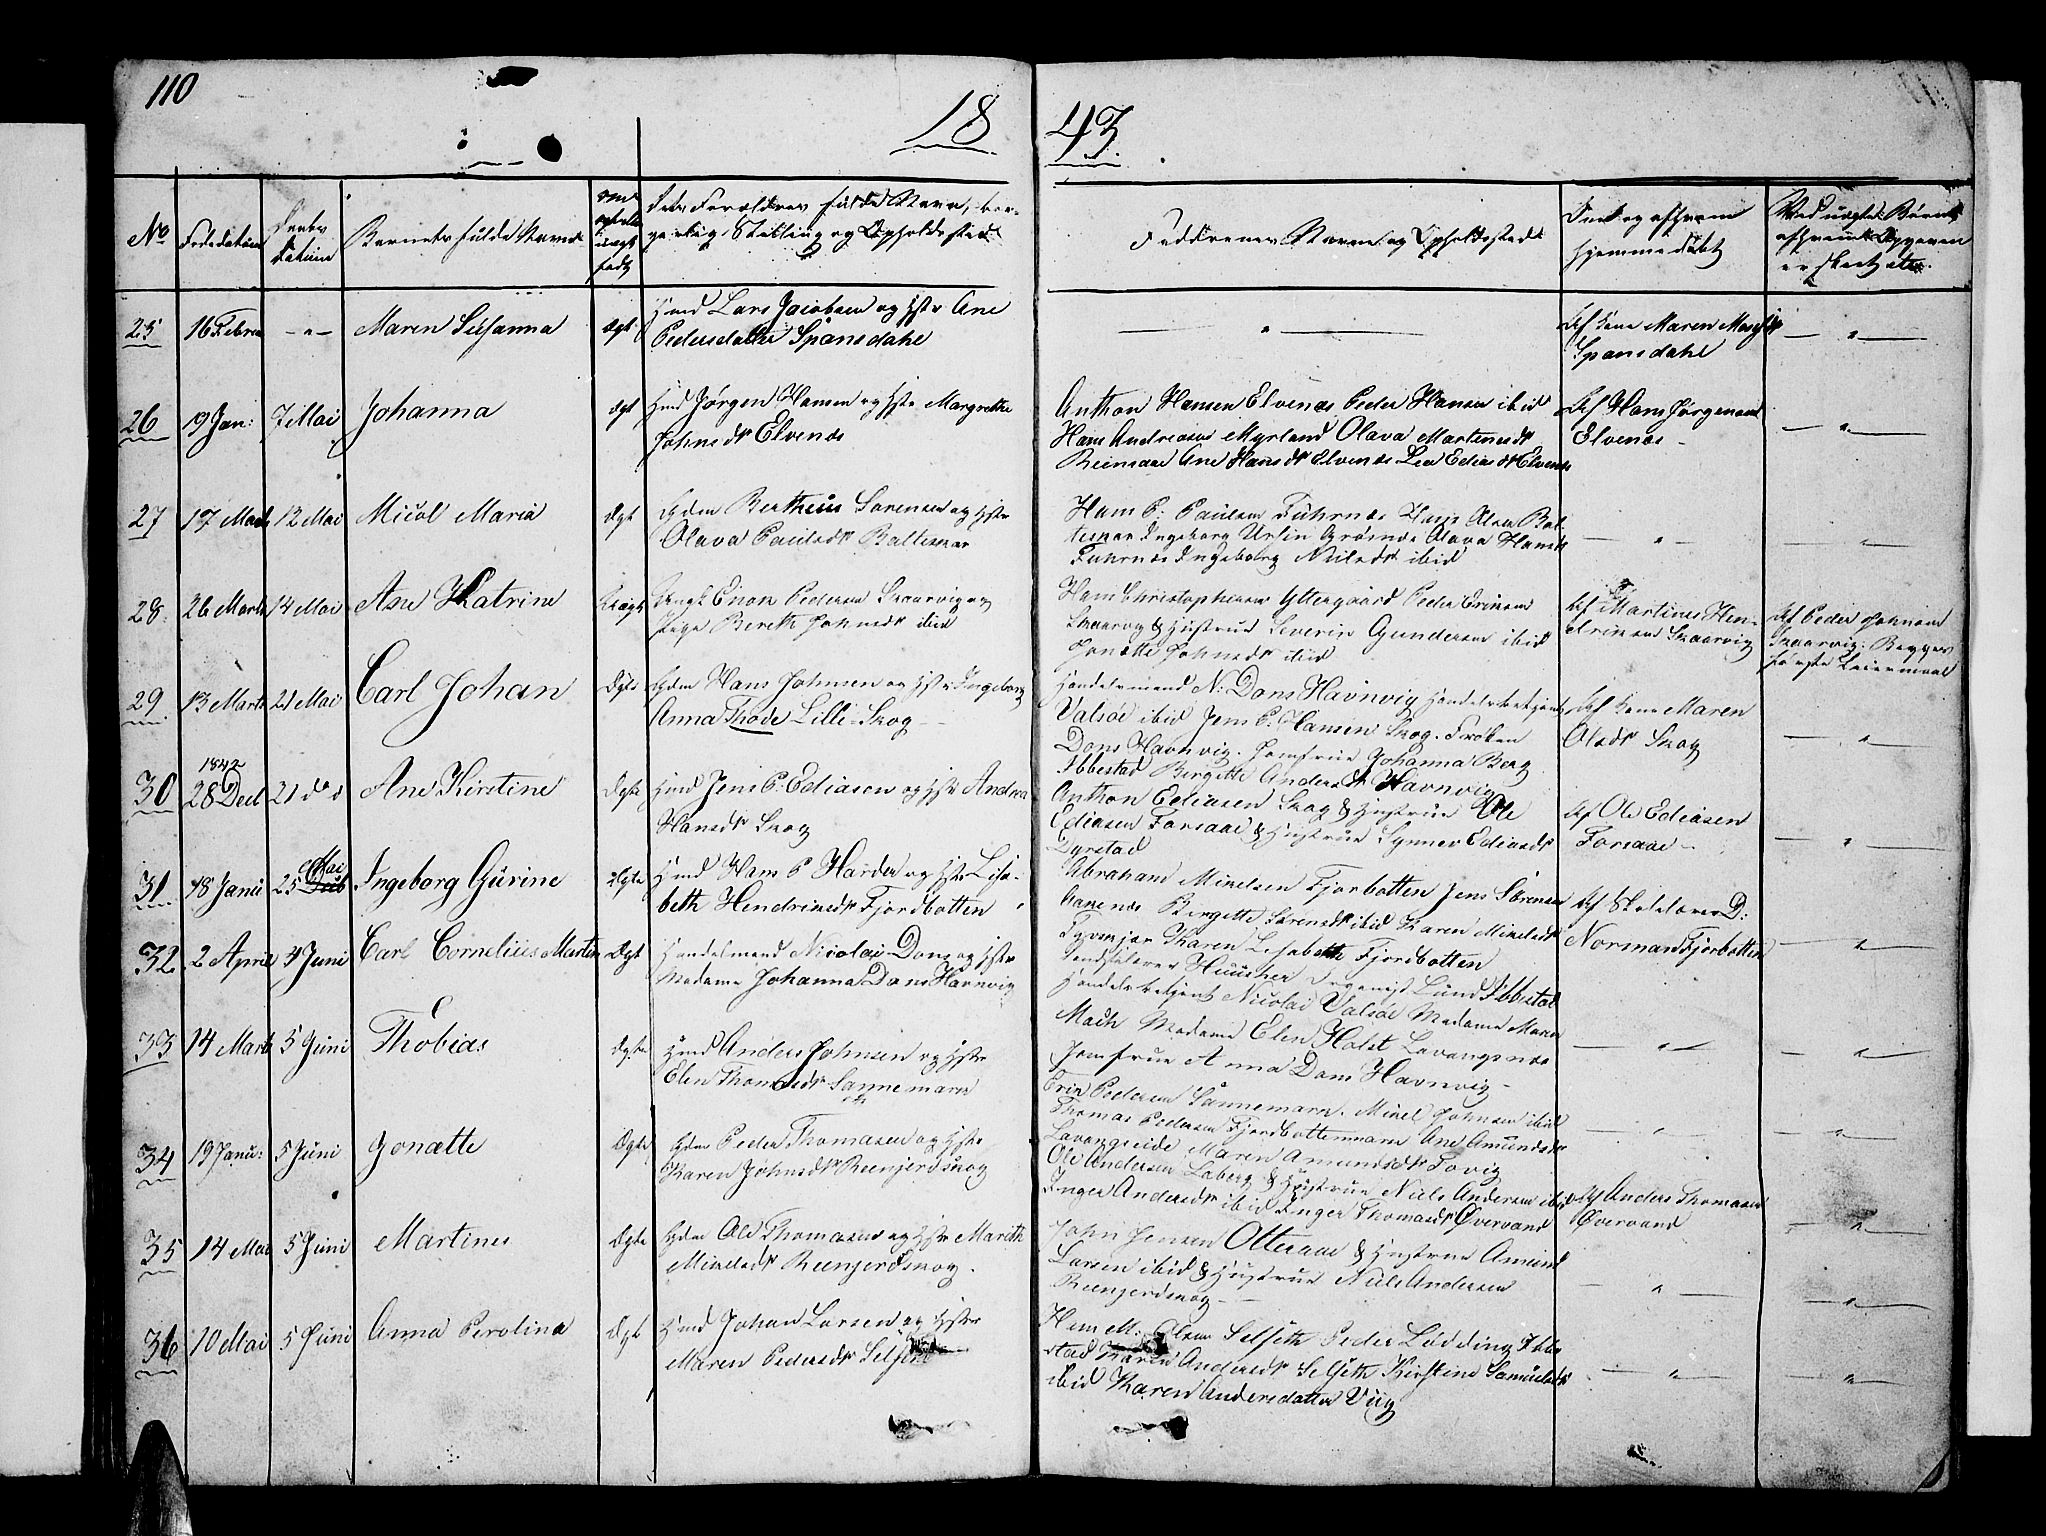 110
18 43.
No
Fødedatum
Daabs Datum
Barnets fulde Navn
Om ægte eller uægte født
Dets Forældres fulde Navn, bor-
gerlig Stilling og Opholdssted
Faddrenes Navne og Opholdssted
hjemmedøbt
25 16 Febru — " — Maren Susanna Ægt
Hmd Lars Jacobsen og Hstr Ane
Pedersdatter Spansdahl
— " —
Af Kone Maren
Spansdahl
— " —
26 19 Jan: 7 Mai Johanna Ægt
Hmd Jørgen Hansen og Hstr Margrethe
Johnsdr Elvenæs
Anthon Hansen Elvenæs Peder Hansen ibid
Hans Andreasen Myrland Olava Martinusdr
Ane Hansdr Elvenæs Lea Ediasdr Elvenæs
Af Hans Jørgensen
Elvenæs —
— " —
27 17 Marti 12 Mai Micol Maria Ægt
Gdm Bertheus Sørensen og Hstr
Olava Paulsdr Baltesnar
Hans P: Paulsen Fuhrnæs Hans Olsen Bal-
tesnar Ingeborg Ursin Grøsnæs Olava Hansdr
Fuhrnæs Ingeborg Nielsdr ibid
— " —
— " —
28 26 Marti 14 Mai Ane Katrine Uægte
Ungk Enok Pedersen Skaarvig og
Pige Berith Johnsdr ibid
Hans Christophersen Yttergaard Peder Eriksen
Skaarvig & Hustrue Severin Gundersen ibid
Jonette Johnsdr ibid
Af Martinus Hen-
driksen Skaarvig
Af Peder Johnsen
Skaarvig: Begges
første Leiermaal
29 13 Marti 21 Mai Carl Johan Ægte
Gdm Hans Johnsen og Hstr Ingeborg
Anna Thode Lille-Skog —
Handelsmand N: Dons Havnvig Handelsbetjent
Valsøe ibid Jens P: Hansen Skog. Frøken
Dons Havnvig. Jomfrue Johanna Berg
Ibbestad Bergitte Andersdr Havnvig
Af Kone Maren
Olsdr Skog
— " —
30 1842 28 Decb 21 do Ane Kirstine Ægte
Hmd Jens P: Ediasen og Hstr Andrea
Hansdr Skog
Anthon Ediasen Skog & Hustrue Ole
Ediasen Forsaae & Hustrue Synnev Ediasdr
Dyrstad
Af Ole Ediasen
Forsaae —
— " —
31 18 Janu 25 Mai Ingeborg Gurine Ægte
Hmd Hans P Harder og Hstr Lisa-
beth Hendriksdr Fjordbotten
Abraham Mikelsen Fjorbotten Jens Sørensen
Aanenæs Bergitte Sørensdr ibid Karen Mikelsdr
Karen Lisabeth Fjordbotten
Af Skolelærer D:
Norman Fjorbotten
— " —
32 2 April 4 Juni Carl Cornelius Martin Ægt
Handelsmand Nicolai Dons og Hstr
Madame Johanna Dons Havnvig
Lund Ibbestad
Handelsbetjent Nicolai Valsøe Madame Maren
Mack Madame Elen Holst Lavangsnæs
Jomfrue Anna Dons Havnvig —
33 14 Marti 5 Juni Thobias Ægte
Hmd Anders Johnsen og Hstr
Elen Thomasdr Sannemark
Erik Pedersen Sannemark. Mikel Johnsen ibid
Thomas Pedersen Fjordbottenmark Ane Amundsdr
Lavangseide Maren Amundsdr Fovig
— " —
— " —
34 19 Janu: 5 Juni Jonette Ægte
Gdm Peder Thomasen og Hstr
Karen Johnsdr Reenjerdskog
Ole Andersen Laberg & Hustrue Niels Andersen ibid
Inger Andersdr ibid Inger Thomasdr Øvervand
Af Anders Thomasen
Øvervand
— " —
35 14 Mai 5 Juni Martines Ægte
Gdm Ole Thomasen og Hstr Marith
Mikelsdr Reenjerdskog.
John Jensen Otteraae & Hustrue Amund
Larsen ibid & Hustrue Niels Andersen
Reenjerdskog —
— " —
— " —
36 10 Mai 5 Juni Anna Perolina Ægt
Hmd Johan Larsen og Hstr
Maren Pedersdr Selseth
Hans M: Olsen Selseth Peder Lødding Ibbe-
stad Karen Andersdr Selseth Kirstine Samuelsdr
ibid Karen Andersdatter Viig
— " —
— " —